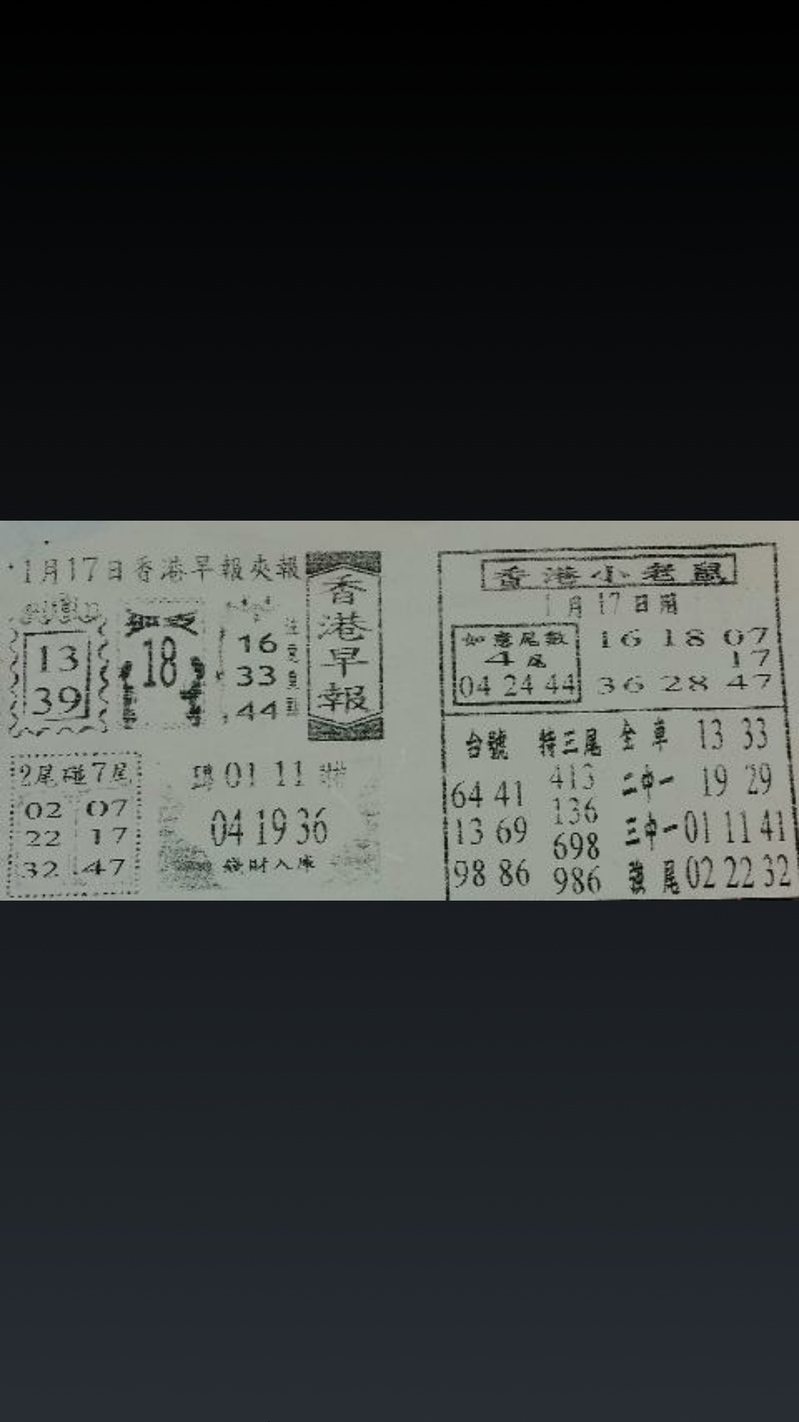 1月17日香港早報夾報
香港早報
13
39
18
16
33
44
2尾碰7尾
02 07
22 17
32 47
01 11
04 19 36
發財入庫
香港小老鼠
1月17日開
如意尾數
4尾
04 24 44
16 18 07
17
36 28 47
台號 特三尾 全車 13 33
64 41 413 二中一 19 29
13 69 136 三中一 01 11 41
98 86 698 號尾 02 22 32
986